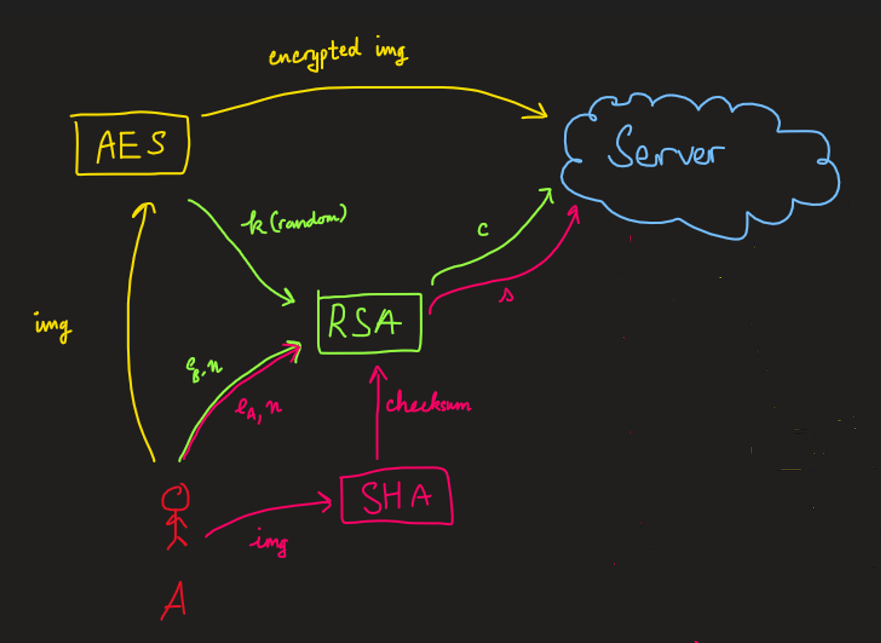 encrypted img
AES
Server
k (random)
c
s
img
RSA
e_B, n
e_A, n
checksum
SHA
img
A